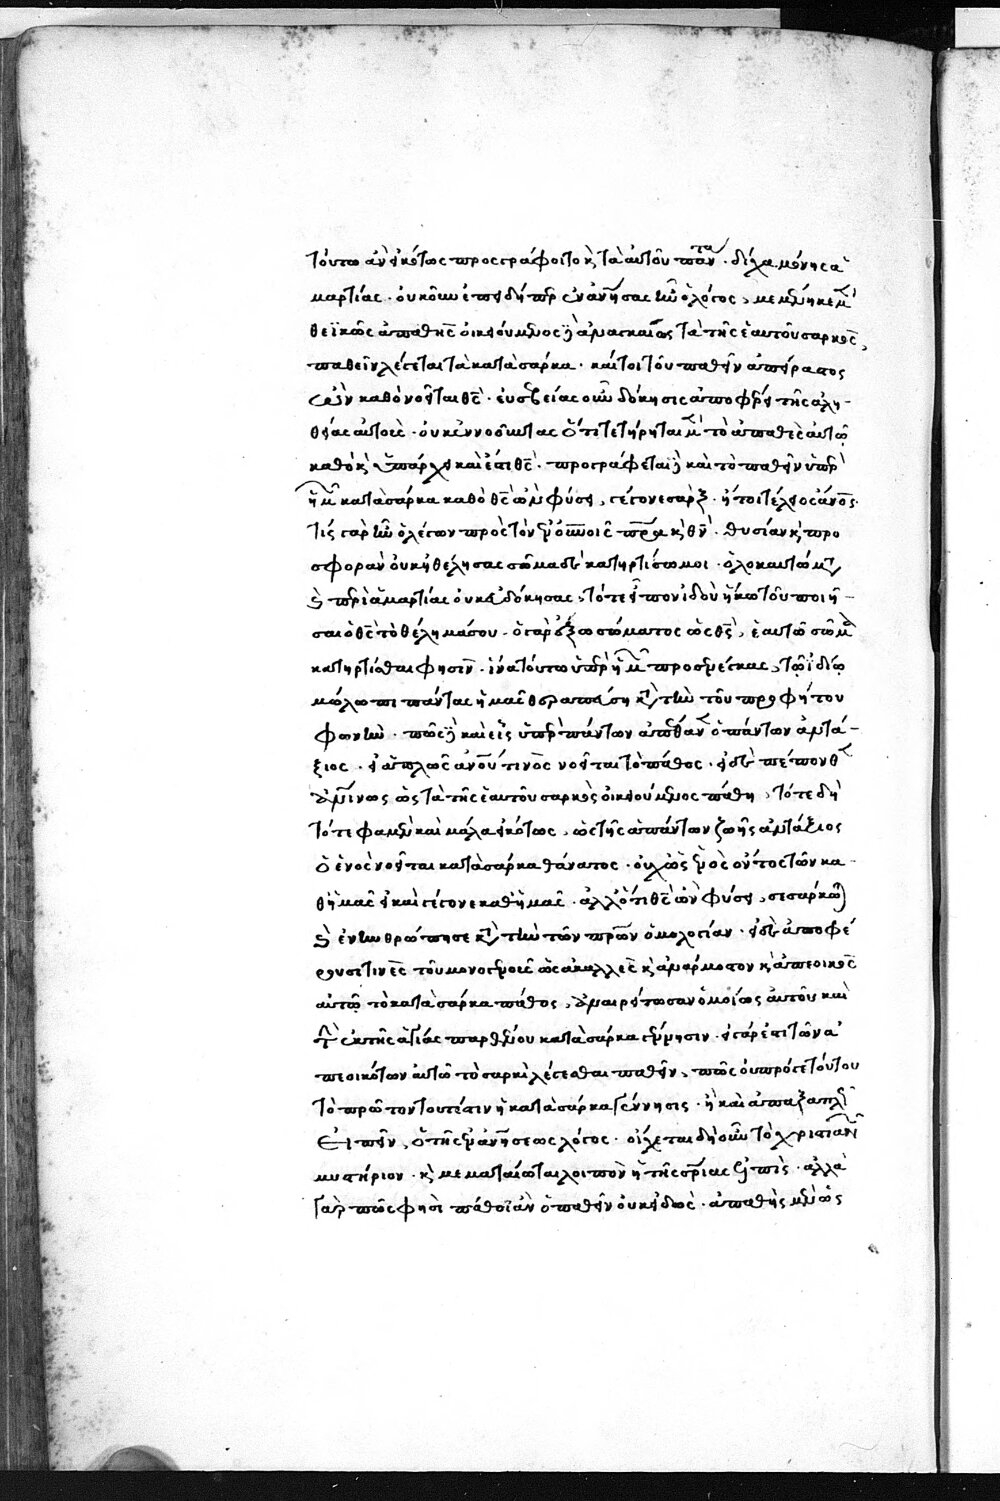 τούτω ἂν εἰκότως προσγράφοιτο κ τὰ αὐτοῦ πάντα · δίχα μόνης ἁ
μαρτίας · οὐκοῦν ἐπειδήπερ ἐνανθρωπήσας ἦν ὁ λόγος, μεμένηκε μὲν
θεϊκῶς ἀπαθὴς οἰκειούμενος δὲ ἀναγκαίως τὰ τῆς ἑαυτοῦ σαρκὸς,
παθεῖν λέγεται τὰ κατὰ σάρκα · καίτοι τοῦ παθεῖν ἀπείρατος
ὢν καθὸ νοεῖται θς · εὐσεβείας οὖν δόκησις ἀποφέρει τῆς ἀλη-
θείας αὐτοὺς · οὐκ ἐννοοῦντας ὅτι τετήρηται μὲν τὸ ἀπαθὲς αὐτῷ
καθὸ κ ὑπάρχει καὶ ἔστι θς · προσγράφεται δὲ καὶ τὸ παθεῖν ὑπὲρ
ἡμῶν κατὰ σάρκα καθὸ θς ὢν φύσει, γέγονε σὰρξ · ἤτοι τέλειος ἄνος ·
τίς γὰρ ἦν ὁ λέγων πρὸς τὸν ἐν οὐνοῖς πρα κ θν · θυσίαν κ προ
σφορὰν οὐκ ἠθέλησας σῶμα δὲ κατηρτίσω μοι · ὁλοκαυτώματα
κ περὶ ἁμαρτίας οὐκ εὐδόκησας, τότε εἶπον ἰδοὺ ἥκω τοῦ ποιῆ-
σαι ὁ θς τὸ θέλημά σου · ὁ γὰρ ἔξω σώματος ὡς θς, ἑαυτῷ σῶμα
κατηρτίσθαι φησιν · ἵνα τοῦτο ὑπὲρ ἡμῶν προσενέγκας, τῷ ἰδίῳ
μώλωπι πάντας ἡμᾶς θεραπεύσῃ κατὰ τὴν τοῦ προφήτου
φωνὴν · πῶς δὲ καὶ εἷς ὑπὲρ πάντων ἀπέθανεν ὁ πάντων ἀντά-
ξιος · εἰ ἁπλῶς ἀνου τινὸς νοεῖται τὸ πάθος · εἰ δὲ πέπονθεν
ἀνθρωπίνως ὡς τὰ τῆς ἑαυτοῦ σαρκὸς οἰκειούμενος πάθη, τότε δὴ
τότε φαμὲν καὶ μάλα εἰκότως, ὡς τῆς ἁπάντων ζωῆς ἀντάξιος
ὁ ἑνὸς νοεῖται κατὰ σάρκα θάνατος · οὐχ ὡς ἑνὸς ὄντος τῶν κα
θ ἡμᾶς εἰ καὶ γέγονε καθ ἡμᾶς · ἀλλ ὅτι θς ὢν φύσει, σεσάρκωται
κ ἐνηνθρώπησε κατὰ τὴν τῶν πρων ὁμολογίαν · εἰ δὲ ἀποφέ
ρουσι τινὲς τοῦ μονογενοῦς ὡς ἀκαλλὲς κ ἀνάρμοστον κ ἀπεοικὸς
αὐτῷ τὸ κατὰ σάρκα πάθος, ἀναιρείτωσαν ὁμοίως αὐτοῦ καὶ
τὴν ἐκ τῆς ἁγίας παρθένου κατὰ σάρκα γέννησιν · εἰ γὰρ ἐστι τῶν ἀ
πεοικότων αὐτῷ τὸ σαρκὶ λέγεσθαι παθεῖν, πῶς οὐ πρό γε τούτου
τὸ πρῶτον τουτέστιν ἡ κατὰ σάρκα γέννησις · ἢ καὶ ἅπαξ ἁπλῶς
εἰπεῖν, ὁ τῆς ἐνανθρωπήσεως λόγος · οἴχεται δὴ οὖν τὸ χριστιανῶν
μυστήριον · κ μεματαίωται λοιπὸν ἡ τῆς σριας ἐλπὶς · ἀλλὰ
γὰρ πῶς φησὶ πάθοι ἂν ὁ παθεῖν οὐκ εἰδὼς · ἀπαθὴς μὲν ὡς